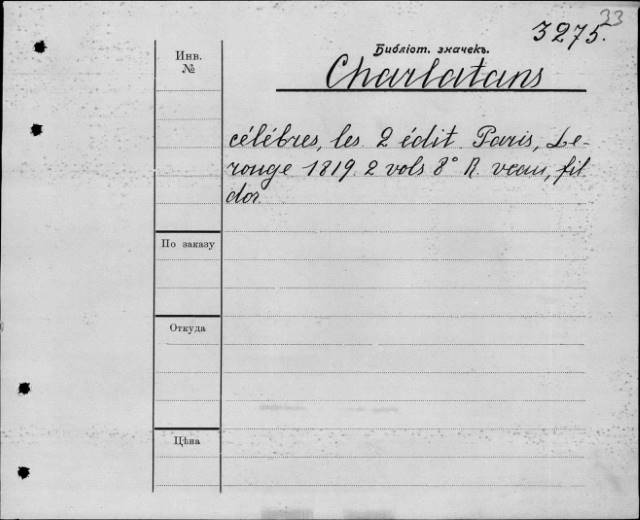 33
3275.
Библіот. значекъ.
Charlatans
Инв.
№
célébres, les 2 édit Paris, Le-
rouge 1819. 2 vols 8° R. veau, fil
dor.
По заказу
Откуда
Цѣна